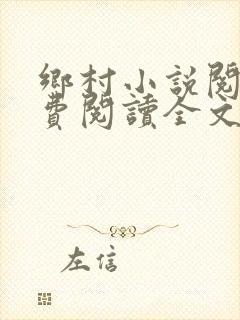 鄉村小説閱
費閱讀全文
左信